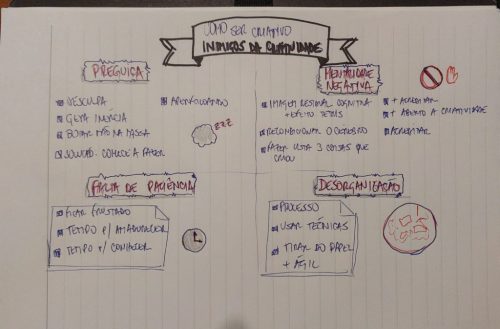 COMO SER CRIATIVO
INIMIGOS DA CRIATIVIDADE
PREGUIÇA
DESCULPA
GERA INÉRCIA
BOTAR MÃO NA MASSA
COMECE A FAZER
APROFUNDANDO
ZZZ
MENTALIDADE
NEGATIVA
IMAGEM RESIDUAL COGNITIVA
EFEITO TETRIS
RECONDICIONAR O CÉREBRO
FAZER LISTA 3 COISAS QUE
CRIOU
+ ACREDITAR
+ ABERTO A CRIATIVIDADE
ACREDITAR
FALTA DE PACIÊNCIA
FICAR FRUSTRADO
TEMPO P/ AMADURECER
TEMPO P/ CONHECER
DESORGANIZAÇÃO
PROCESSO
USAR TÉCNICAS
TIRAR DO PAPEL
+ ÁGIL